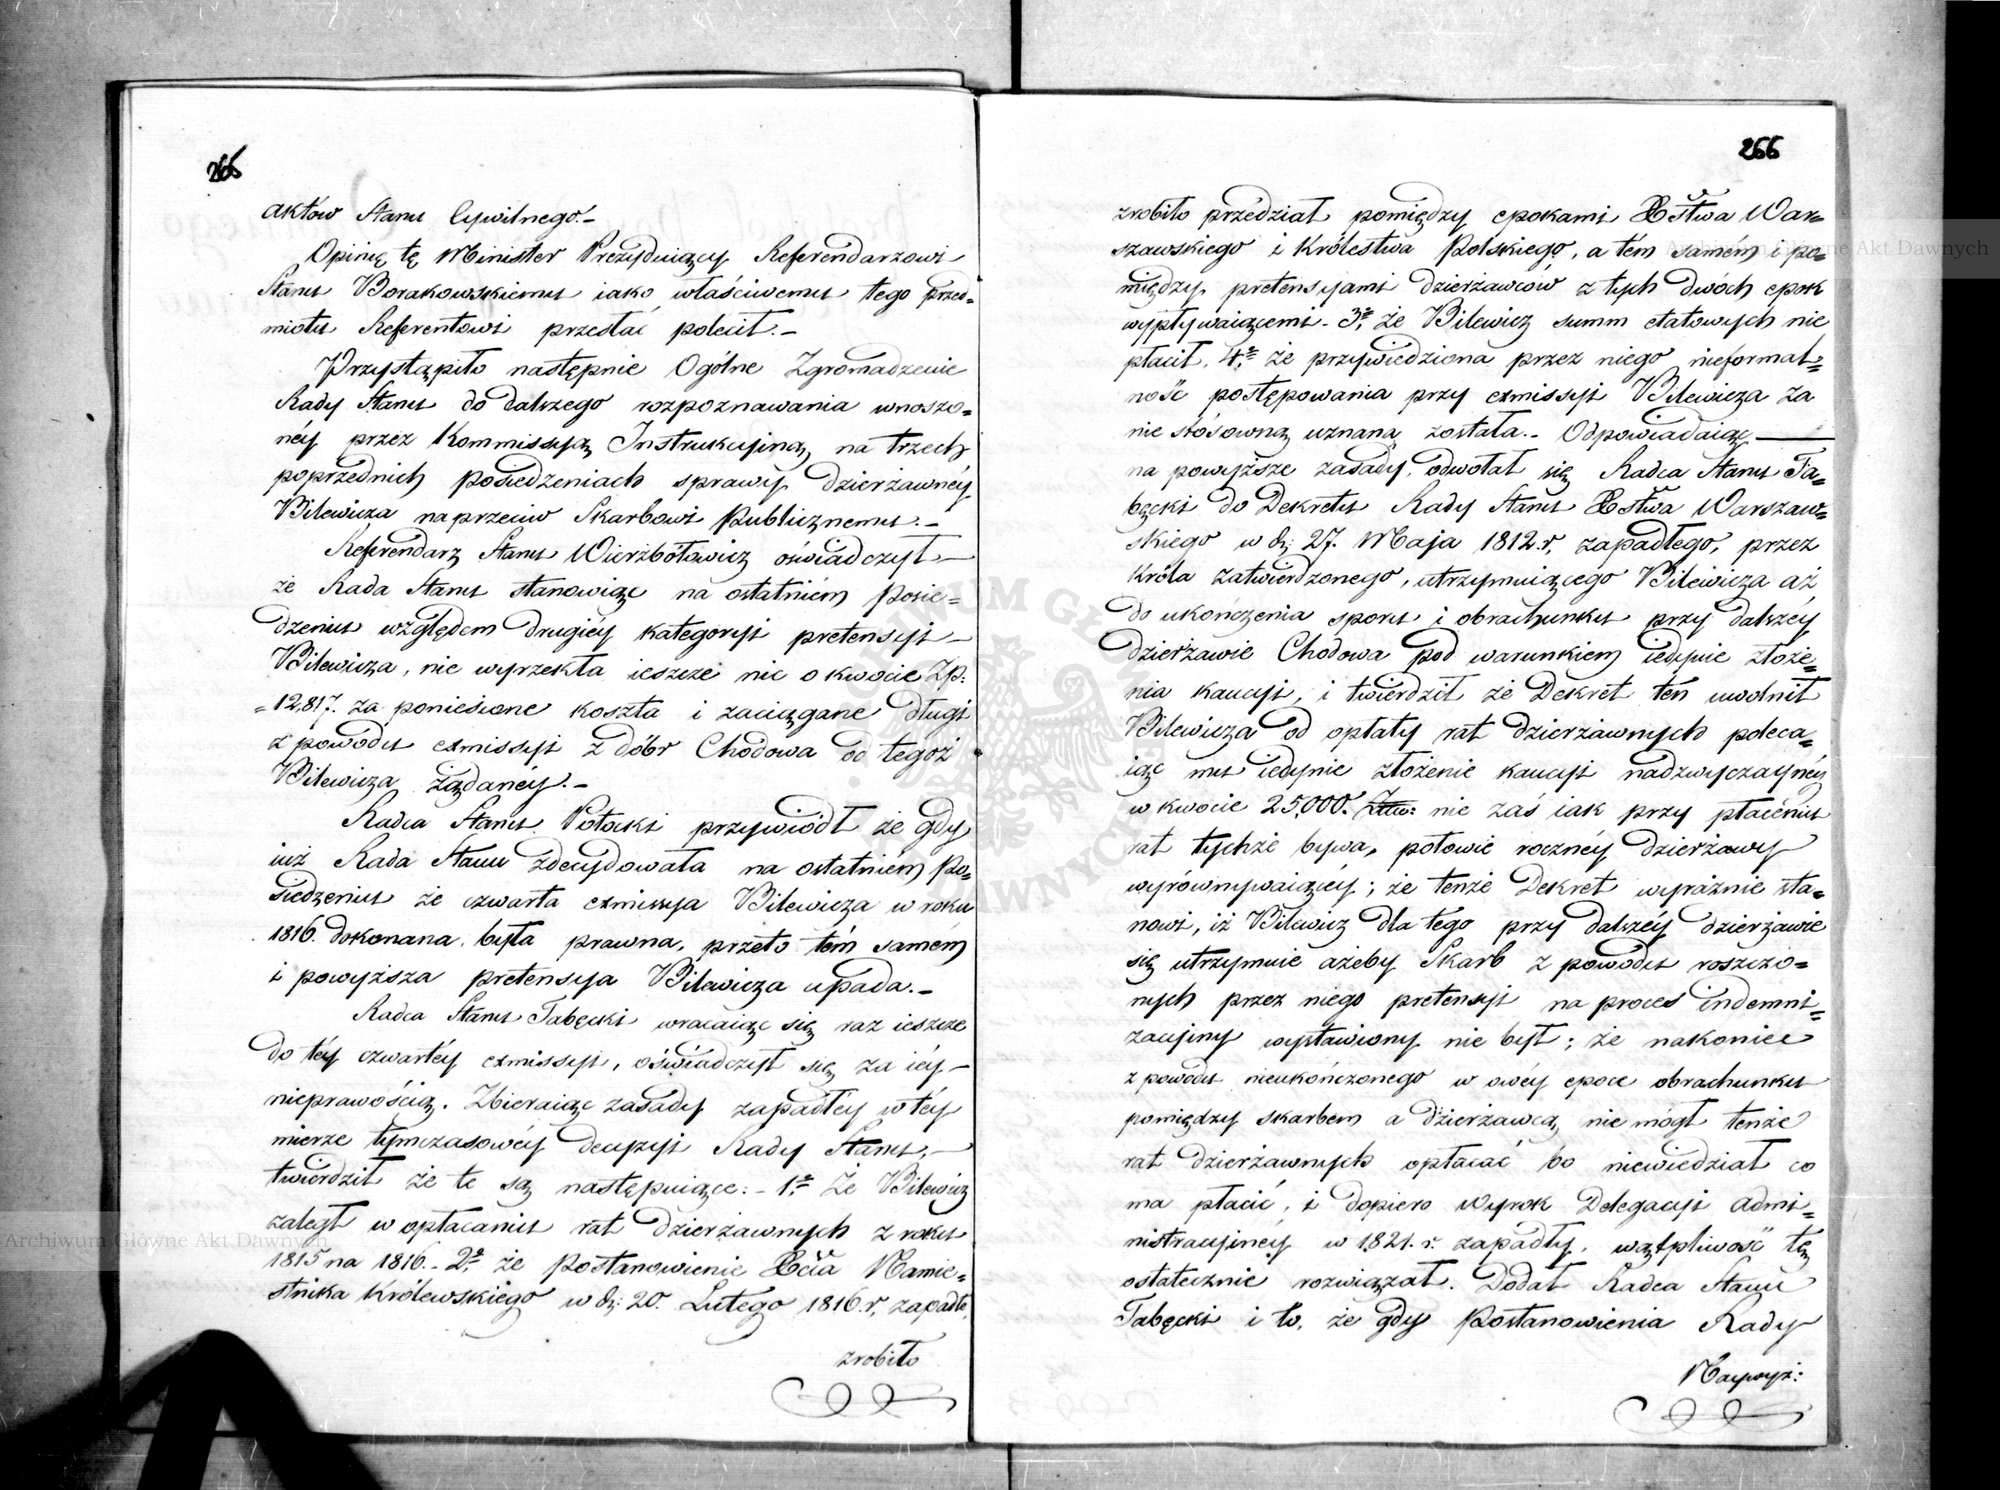 265
aktów Stanu Cywilnego.–
Opinię tę Minister Prezyduiący Referendarzowi
Stanu Borakowskiemu iako właściwemu tego przed=
miotu Referentowi przesłać polecił.–
Przystąpiło następnie Ogólne Zgromadzenie
Rady Stanu do dalszego rozpoznawania wnoszo=
néy przez Kommissyą Instrukcyiną na trzech
poprzednich posiedzeniach sprawy dzierżawnéy
Bilewicza naprzeciw Skarbowi Publicznemu.–
Referendarz Stanu Wierzbołowicz oświadczył–
że Rada Stanu stanowiąc na ostatniém Posie=
dzeniu względem drugiéy kategoryi pretensyi–
Bilewicza, nie wyrzekła ieszcze nic o kwocie Zp:
=12,817. za poniesione koszta i zaciągane długi
z powodu exmissyi z dóbr Chodowa od tegoż
Bilewicza żądanéy.–
Radca Stanu Potocki przywiódł że gdy
iuż Rada Stanu zdecydowała na ostatniém Po=
siedzeniu że czwarta exmissya Bilewicza w roku
1816. dokonana, była prawna, przeto tém samém
i powyższa pretensya Bilewicza upada.–
Radca Stanu Tabęcki wracaiąc się raz ieszcze
do téy czwartéy exmissyi, oświadczył się za iéy–
nieprawością. Zbieraiąc zasady zapadłéy w téy
mierze tymczasowéy decyzyi Rady Stanu,–
twierdził że te są następuiące:– 1º że Bilewicz
zaległ w opłacaniu rat dzierżawnych z roku
1815 na 1816.– 2º że Postanowienie Xcia Namie=
stnika Królewskiego w d: 20. Lutego 1816.r, zapadłe,
zrobiło
266
zrobiło przedział pomiędzy epokami Xstwa War=
szawskiego i Królestwa Polskiego, a tém samém i po=
między pretensyami dzierżawców z tych dwóch epok
wypływaiącemi.– 3º że Bilewicz summ etatowych nie
płacił, 4º że przywiedziona przez niego nieformal=
ność postępowania przy exmissyi Bilewicza za
nie stósowną uznaną została.– Odpowiadaiąc
na powyższe zasady, odwołał się Radca Stanu Ta=
bęcki do Dekretu Rady Stanu Xstwa Warszaw=
skiego w d: 27. Maja 1812.r, zapadłego, przez
Króla zatwierdzonego, utrzymuiącego Bilewicza aż
do ukończenia sporu i obrachunku przy dalszéy
dzierżawie Chodowa pod warunkiem iedynie złoże=
nia kaucyi, i twierdził że Dekret ten uwolnił
Bilewicza od opłaty rat dzierżawnych poleca=
iąc mu iedynie złożenie kaucyi nadzwyczaynéy
w kwocie 25,000. nie zaś iak przy płacéniu
rat tychże bywa, połowie rocznéy dzierżawy
wyrównywaiącéy; że tenże Dekret wyraźnie sta=
nowi, iż Bilewicz dla tego przy dalszéy dzierżawie
się utrzymuie ażeby Skarb z powodu roszczo=
nych przez niego pretensyi na proces indemni=
zacyiny wystawiony nie był; że nakoniec
z powodu nieukończonego w owéy epoce obrachunku
pomiędzy skarbem a dzierżawcą nie mógł tenże
rat dzierżawnych opłacać bo niewiedział co
ma płacić, i dopiero Wyrok Delegacyi Admi=
nistracyinéy w 1821. r. zapadły, wątpliwość tę
ostatecznie rozwiązał. Dodał Radca Stanu
Tabęcki i to, że gdy Postanowienia Rady
Naywyż:
Archiwum Główne Akt Dawnych
Archiwum Główne Akt Dawnych